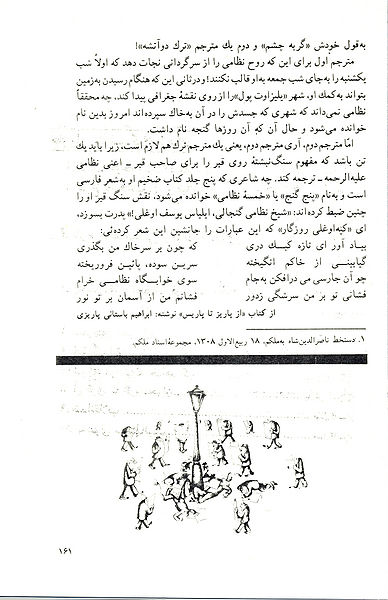 به‌قول خودش «گربه چشم» و دوم یك مترجم «ترك دوآتشه»!
مترجم اول برای این که روح نظامی را از سرگردانی نجات دهد که اولاً شب
یکشنبه را به‌جای شب جمعه به‌او قالب نکنند! و درثانی این که هنگام رسیدن به‌زمین
بتواند به‌کمك او، شهر «یلیزاوت پول» را از روی نقشهٔ جغرافی پیدا کند. چه محققاً
نظامی نمی‌داند که شهری که جسدش را در آن به‌خاك سپرده‌اند امروز بدین نام
خوانده می‌شود و حال آن که آن روزها گنجه نام داشت.
امّا مترجم دوم، آری مترجم دوم، یعنی یك مترجم ترك هم لازم است، زیرا باید یك
تن باشد که مفهوم سنگ‌نبشتهٔ روی قبر را برای صاحب قبر ـ اعنی نظامی
علیه‌الرحمه ـ ترجمه کند. چه شاعری که پنج جلد کتاب ضخیم او به‌شعر فارسی
است و به‌نام «پنج گنج» یا «خمسهٔ نظامی» خوانده می‌شود، نقش سنگ قبر او را
چنین ضبط کرده‌اند: «شیخ نظامی گنجالی، ایلیاس یوسف اوغلی!» پدرت بسوزد،
ای «کپه‌اوغلی روزگار» که این عبارات را جانشین این شعر کرده‌ئی:
بیـاد آور ای تازه کبـك دری که چون بر سرخاك من بگذری
گیابینـی از خاکـم انگیخته سریـن سوده، بالیـن فروریخته
جو آن جارسی می درافکن به‌جام سوی خوابـگاه نظامـی خرام
فشانی تو بر من سرشگی زدور فشانم من از آسمان بر تو نور
از کتاب «از پاریز تا پاریس» نوشته: ابراهیم باستانی پاریزی
۱. دستخط ناصرالدین‌شاه به‌ملکم، ۱۸ ربیع‌الاول ۱۳۰۸، مجموعهٔ اسناد ملکم.
۱۶۱